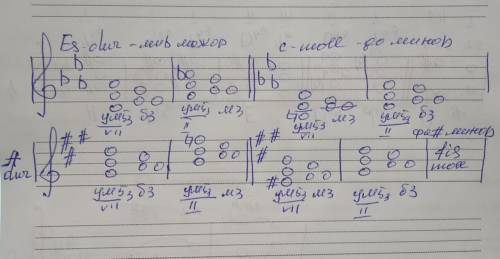 Es-dur - ми b мажор   c-moll - до минор
ум5/3 б3   ум5/3 м3   ум5/3 м3   ум5/3 б3
VII   II   VII   II
фа# минор
A dur   fis moll
ум5/3 б3   ум5/3 м3   ум5/3 м3   ум5/3 б3
VII   II   VII   II